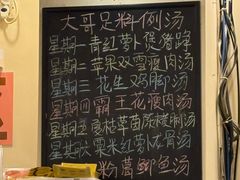 大哥足料例汤
星期一 青红萝卜煲猪蹄
星期二 苹果双雪瘦肉汤
星期三 花生鸡脚汤
星期四 霸王花瘦肉汤
星期五 茶树菇
星期六 粟米红萝卜龙骨汤
粉葛鲫鱼汤